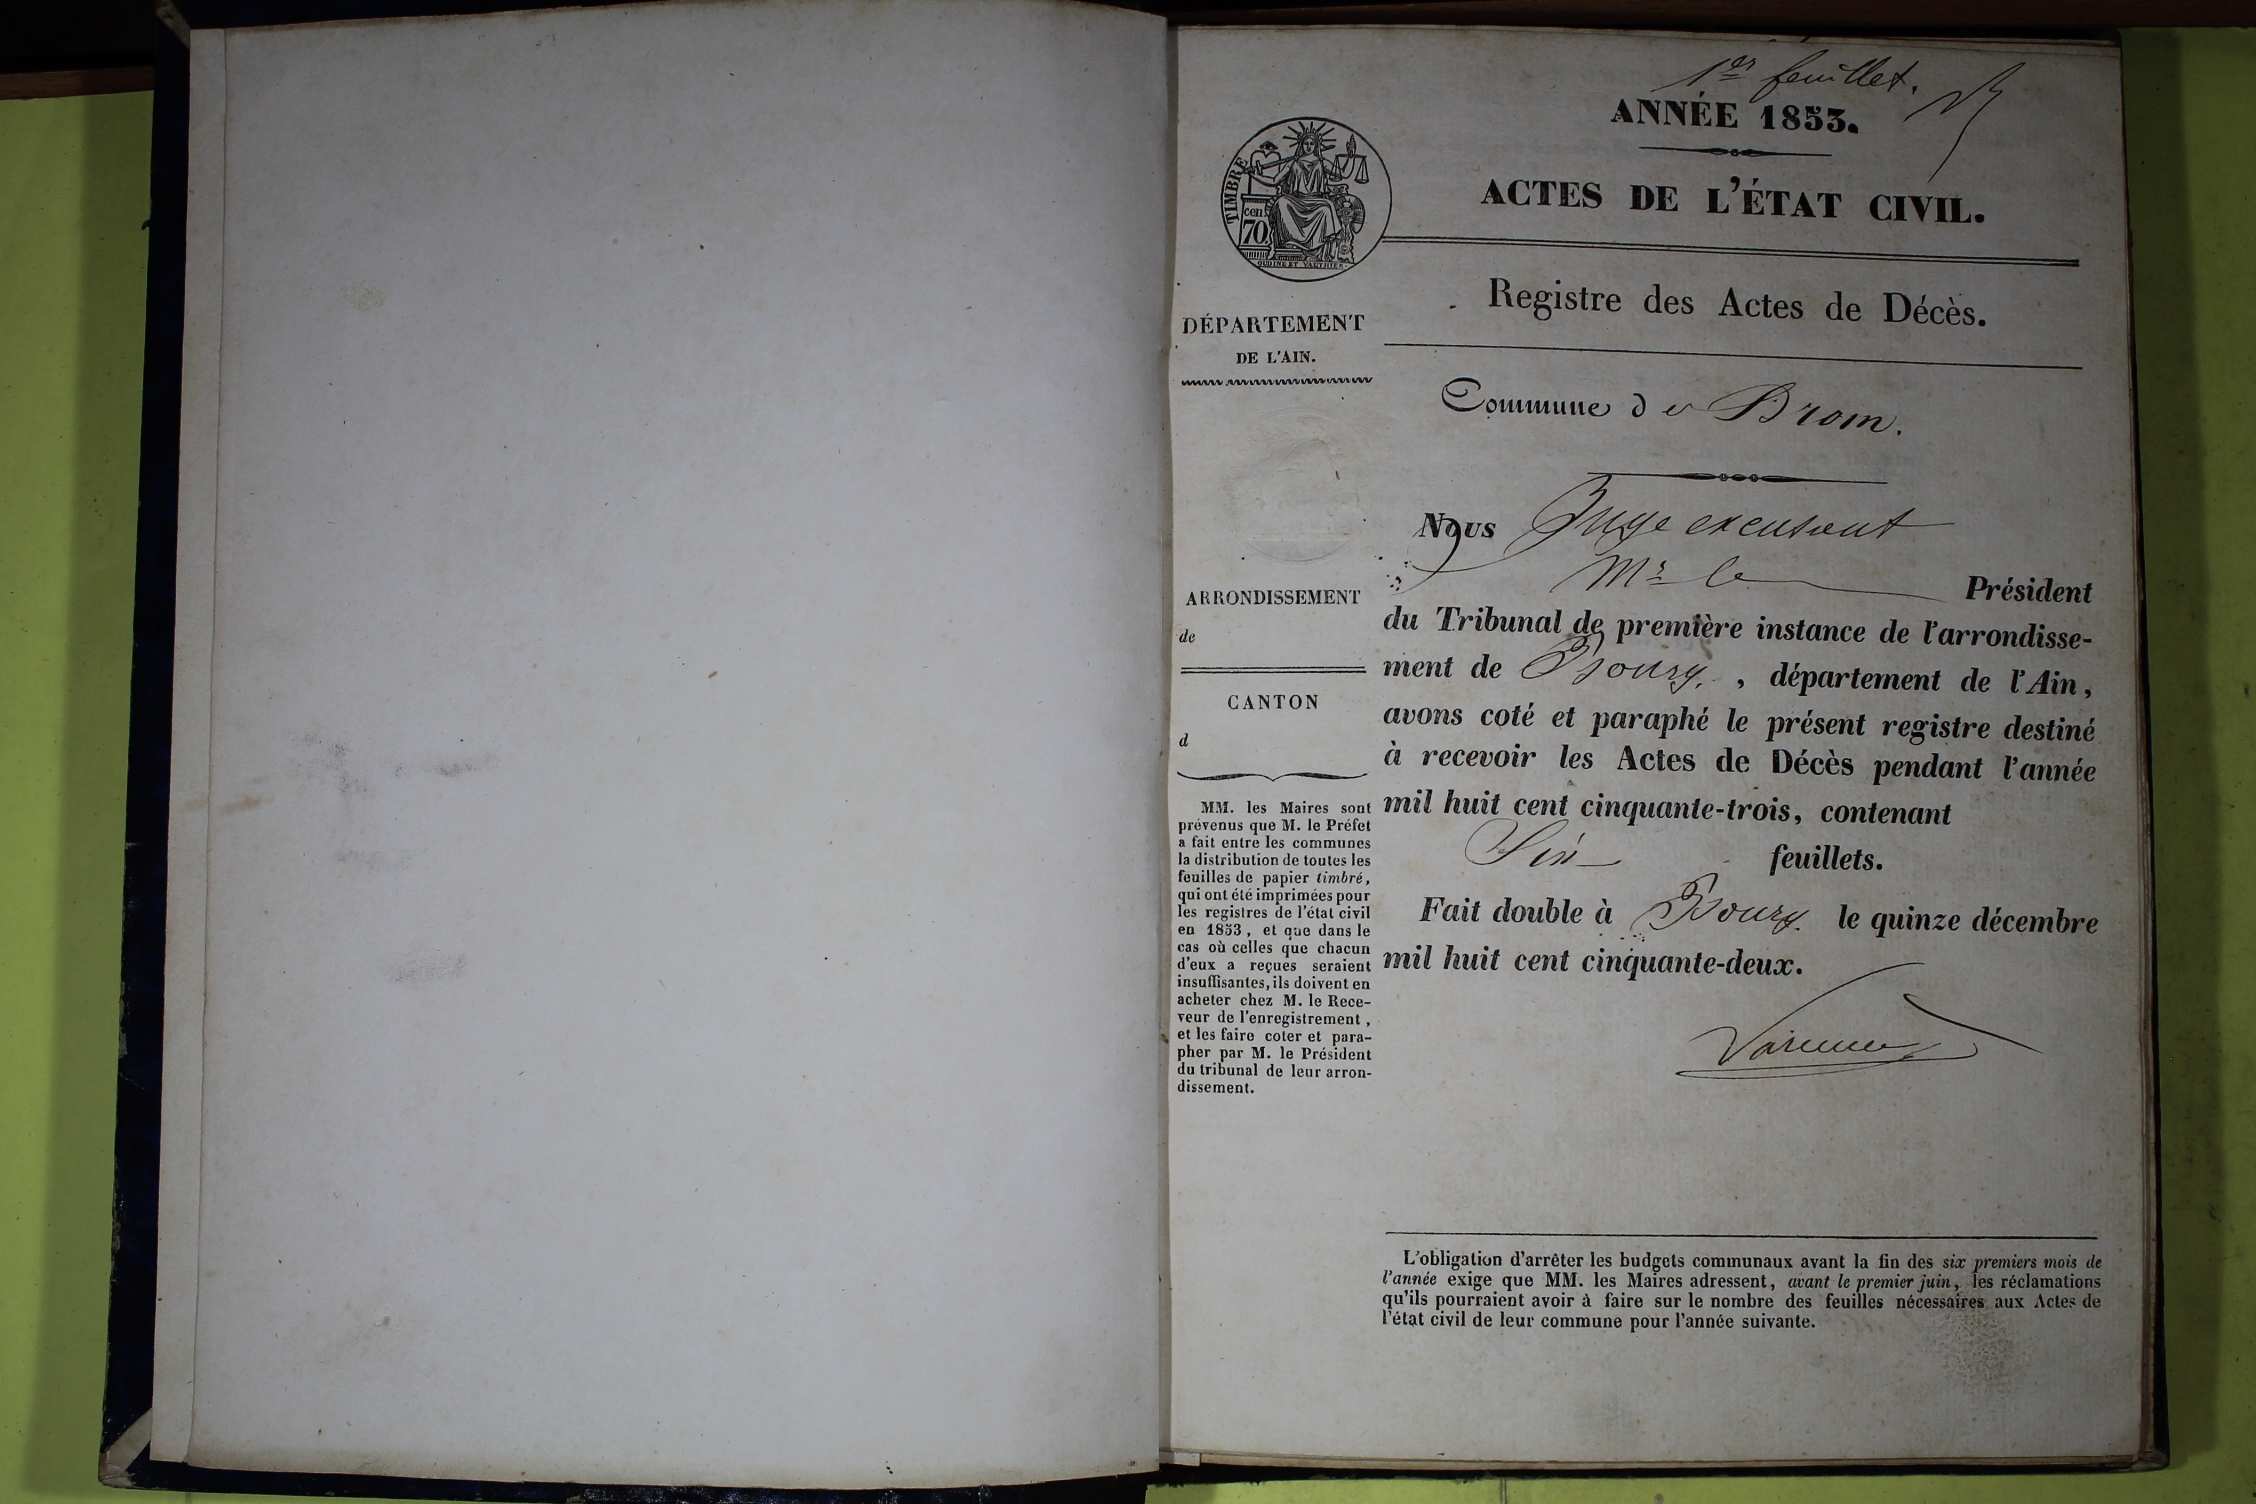 1er feuillet.
ANNÉE 1853.
ACTES DE L'ÉTAT CIVIL.
TIMBRE
cen
70
OUDINE ET VAUTHIER.
Registre des Actes de Décès.
DÉPARTEMENT
DE L'AIN.
Commune de Brom.
Nous Juge excusant
Mr le Président
du Tribunal de première instance de l'arrondisse-
ment de Bourg, département de l'Ain,
avons coté et paraphé le présent registre destiné
à recevoir les Actes de Décès pendant l'année
mil huit cent cinquante-trois, contenant
Six feuillets.
Fait double à Bourg. le quinze décembre
mil huit cent cinquante-deux.
ARRONDISSEMENT
de
CANTON
d
MM. les Maires sont
prévenus que M. le Préfet
a fait entre les communes
la distribution de toutes les
feuilles de papier timbré,
qui ont été imprimées pour
les registres de l'état civil
en 1853, et que dans le
cas où celles que chacun
d'eux a reçues seraient
insuffisantes, ils doivent en
acheter chez M. le Rece-
veur de l'enregistrement,
et les faire coter et para-
pher par M. le Président
du tribunal de leur arron-
dissement.
L'obligation d'arrêter les budgets communaux avant la fin des six premiers mois de
l'année exige que MM. les Maires adressent, avant le premier juin, les réclamations
qu'ils pourraient avoir à faire sur le nombre des feuilles nécessaires aux Actes de
l'état civil de leur commune pour l'année suivante.